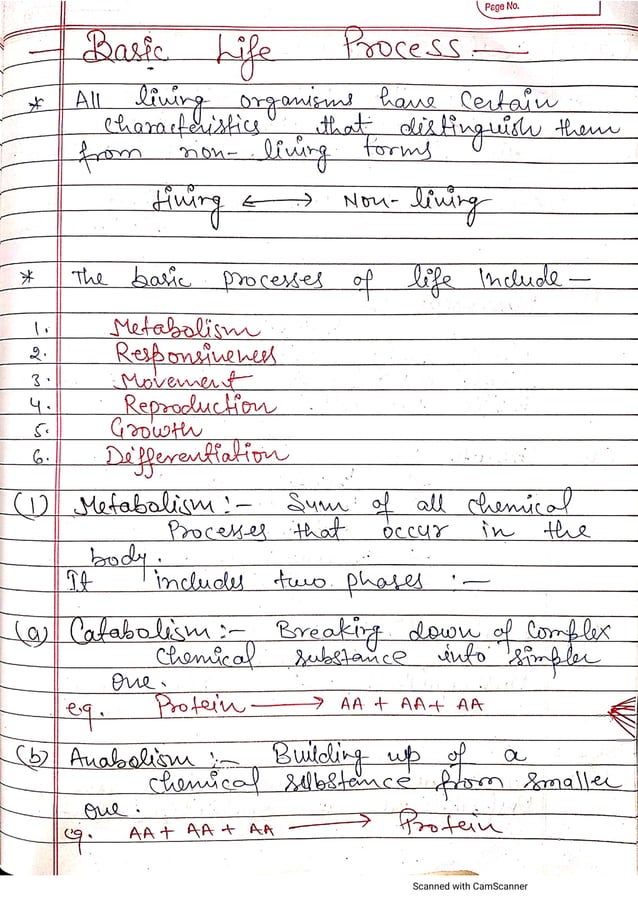 Page No.
— Basic Life Process —
* All living organisms have certain
characteristics that distinguish them
from non-living forms
Living ⟷ Non-living
* The basic processes of life include –
1. Metabolism
2. Responsiveness
3. Movement
4. Reproduction
5. Growth
6. Differentiation
(1) Metabolism :- Sum of all chemical
Processes that occur in the
body.
It includes two phases :-
(a) Catabolism :- Breaking down of complex
chemical substance into simpler
one.
e.g. Protein ⟶ AA + AA + AA
(b) Anabolism :- Building up of a
chemical substance from smaller
one.
eg. AA + AA + AA ⟶ Protein
Scanned with CamScanner